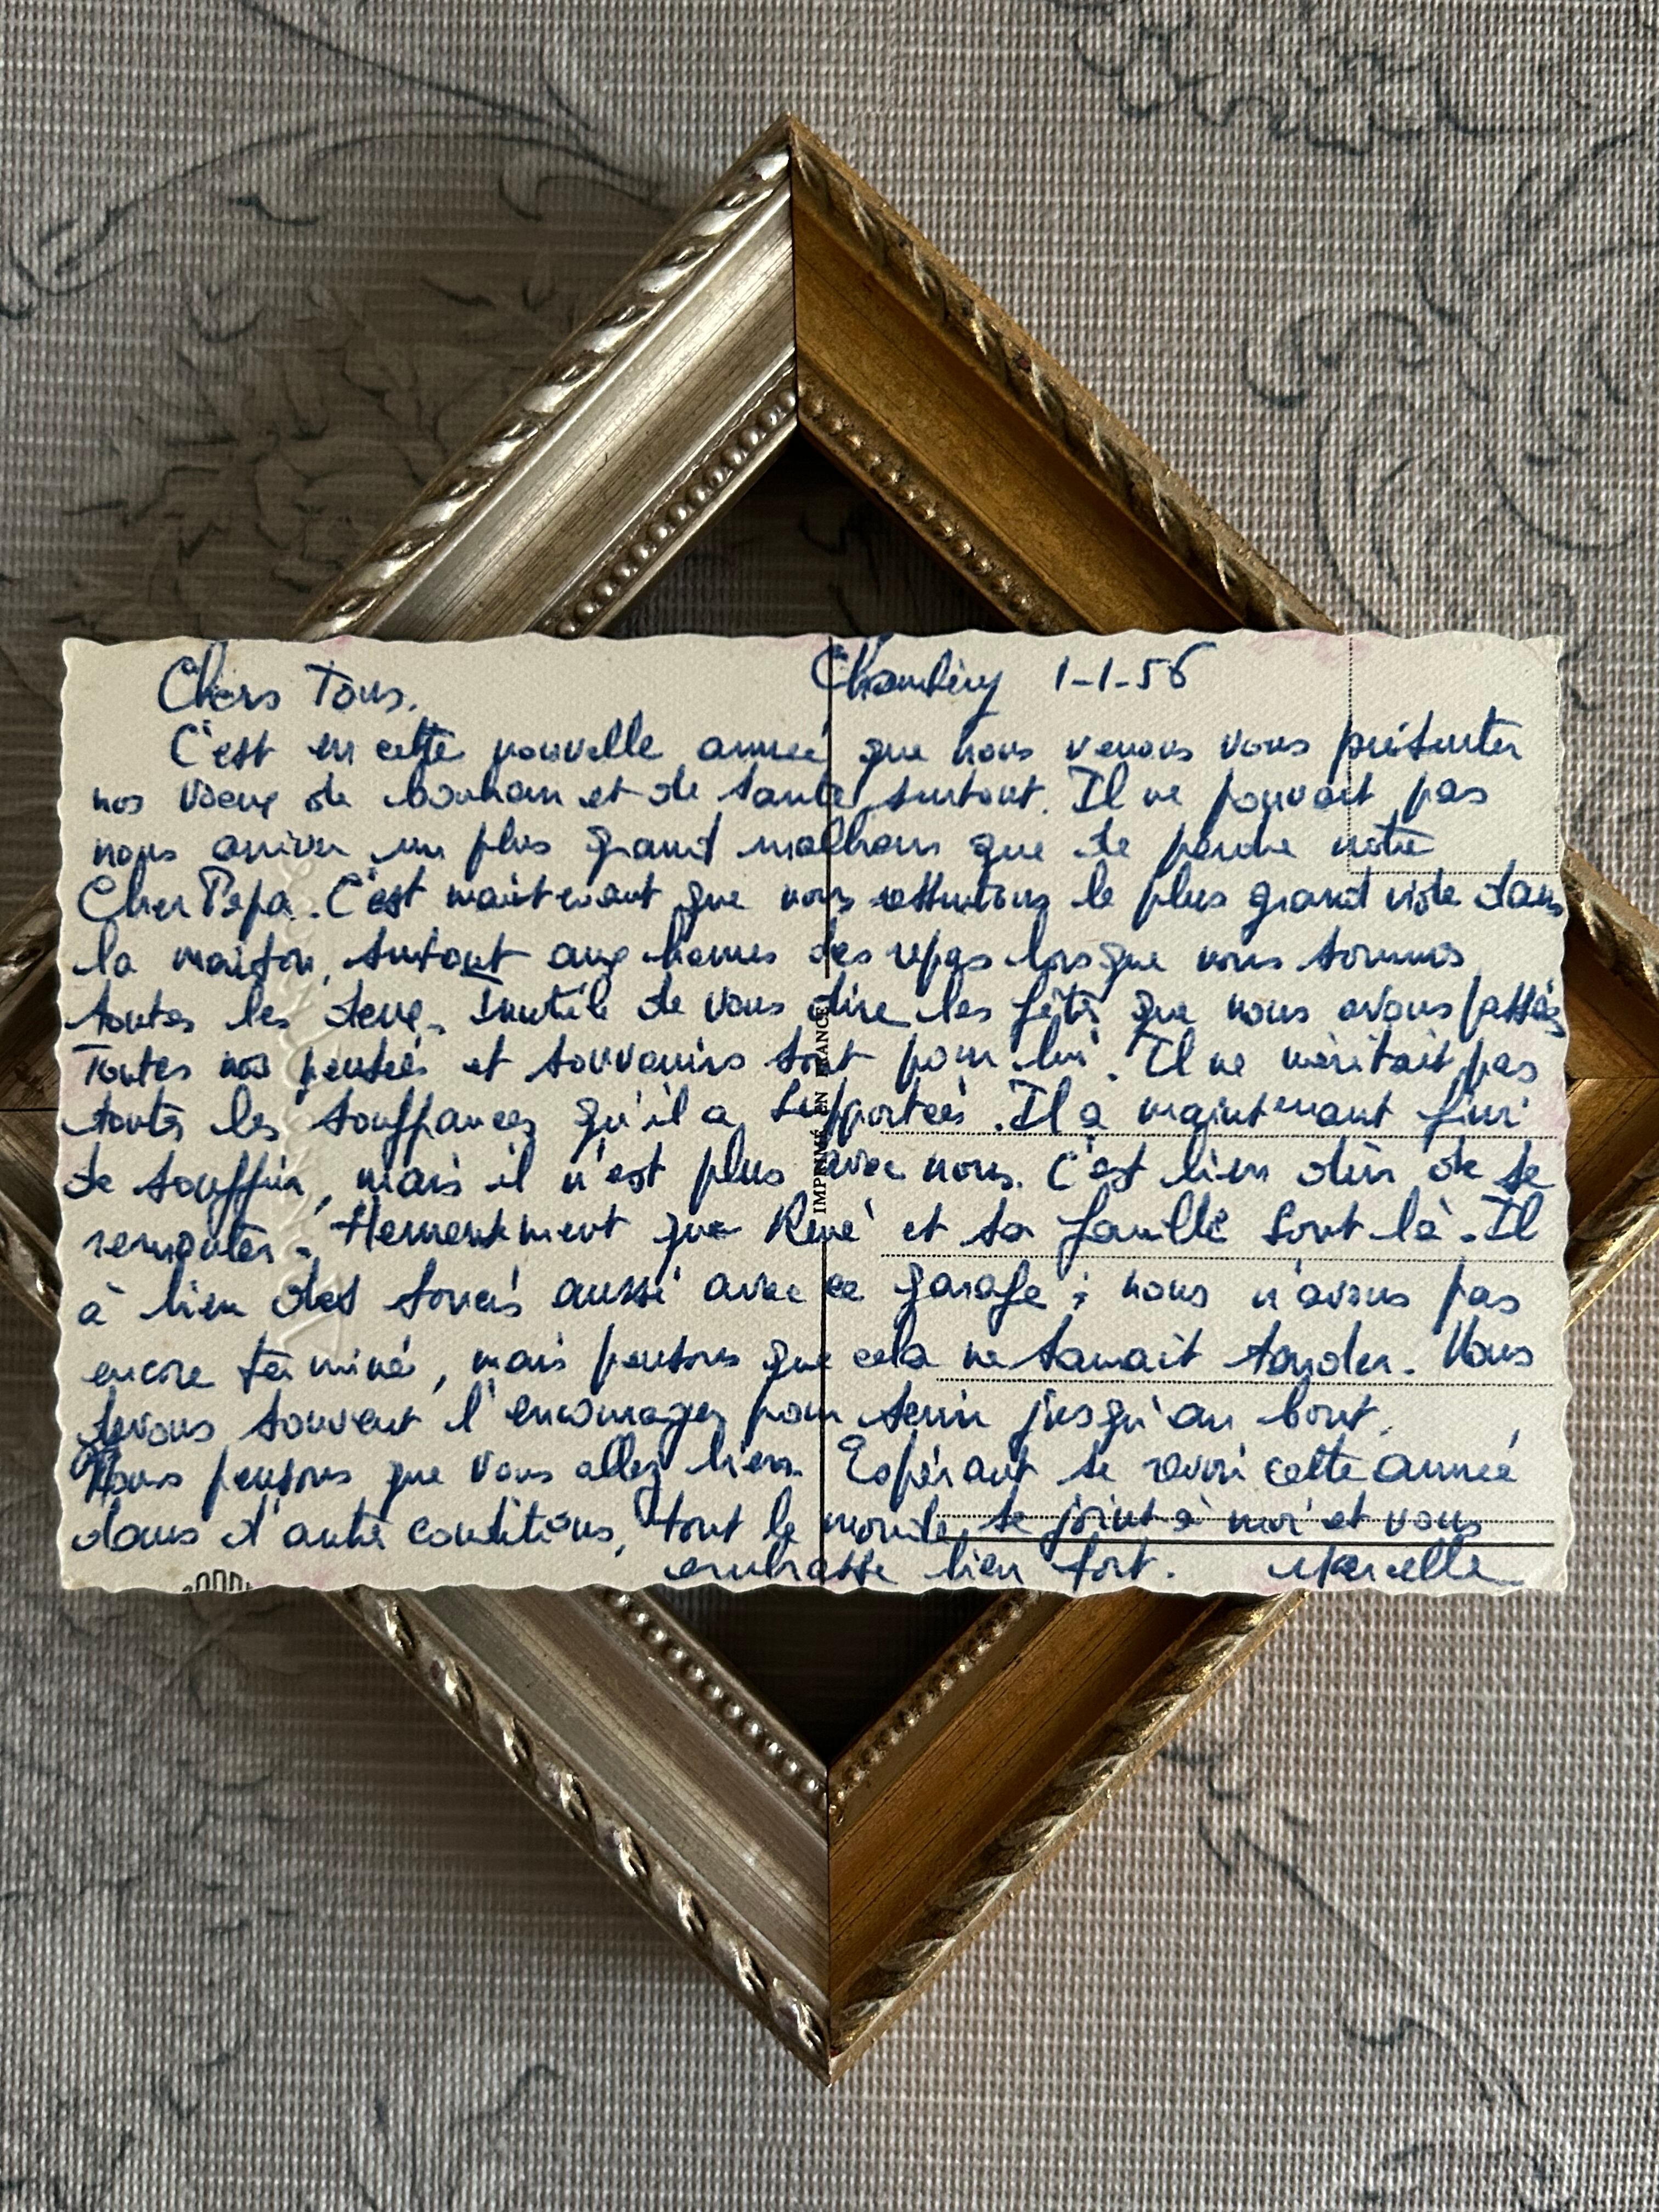 Chers Tous. Chambéry 1-1-56
C'est en cette nouvelle année que nous venons vous présenter
nos voeux de bonheur et de santé surtout. Il ne pouvait pas
nous arriver un plus grand malheur que de perdre notre
Cher Papa. C'est maintenant que nous ressentons le plus grand vide dans
la maison, surtout aux heures des repas lorsque nous sommes
toutes les deux. Inutile de vous dire les fêtes que nous avons passées
Toutes nos pensées et souvenirs sont pour lui. Il ne méritait pas
toutes les souffrances qu'il a supportées. Il a maintenant fini
de souffrir, mais il n'est plus avec nous. C'est bien dur de se
remonter. Heureusement que René et sa famille sont là. Il
à bien des soucis aussi avec ce garage ; nous n'avons pas
encore terminé, mais pensons que cela ne saurait tarder. Nous
devons souvent l'encourager pour tenir jusqu'au bout.
Nous pensons que vous allez bien. Espérant se revoir cette année
dans d'autre conditions, tout le monde se joint à moi et vous
embrasse bien fort. Marcelle
IMPRIMÉ EN FRANCE